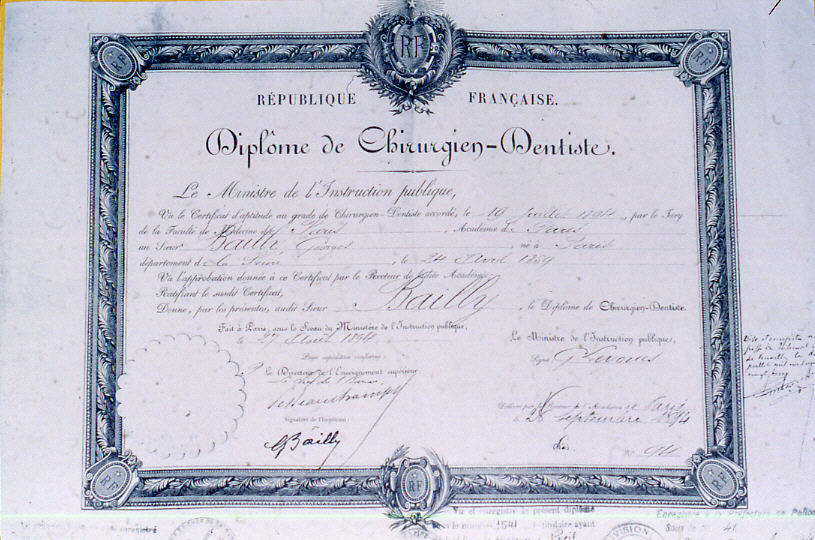 RF
RF
RF
RÉPUBLIQUE FRANÇAISE.
Diplôme de Chirurgien-Dentiste.
Le Ministre de l'Instruction publique,
Vu le Certificat d'aptitude au grade de Chirurgien-Dentiste accordé, le 19 juillet 1894, par le Jury
de la Faculté de Médecine de Paris, Académie de Paris,
au Sieur Bailly Georges, né à Paris
département de la Seine, le 24 Avril 1859
Vu l'approbation donnée à ce Certificat par le Recteur de ladite Académie;
Ratifiant le susdit Certificat,
Donne, par les présentes, audit Sieur Bailly, le Diplôme de Chirurgien-Dentiste.
Fait à Paris, sous le Sceau du Ministère de l'Instruction publique,
le 27 1894
Le Ministre de l'Instruction publique,
Signé
Pour expédition conforme:
Le Directeur de l'Enseignement supérieur
de Beauchamps
Délivré par le Recteur de l'Académie de Paris
le 28 septembre 1894
Signature de l'Impétrant:
GBailly
No 914
RF
RF
RF
Vu et enregistré le présent diplôme
sous le numéro 1541 titulaire ayant
enregistré
Enregistré à la Préfecture de Police
Sous le No 41
DIVISION